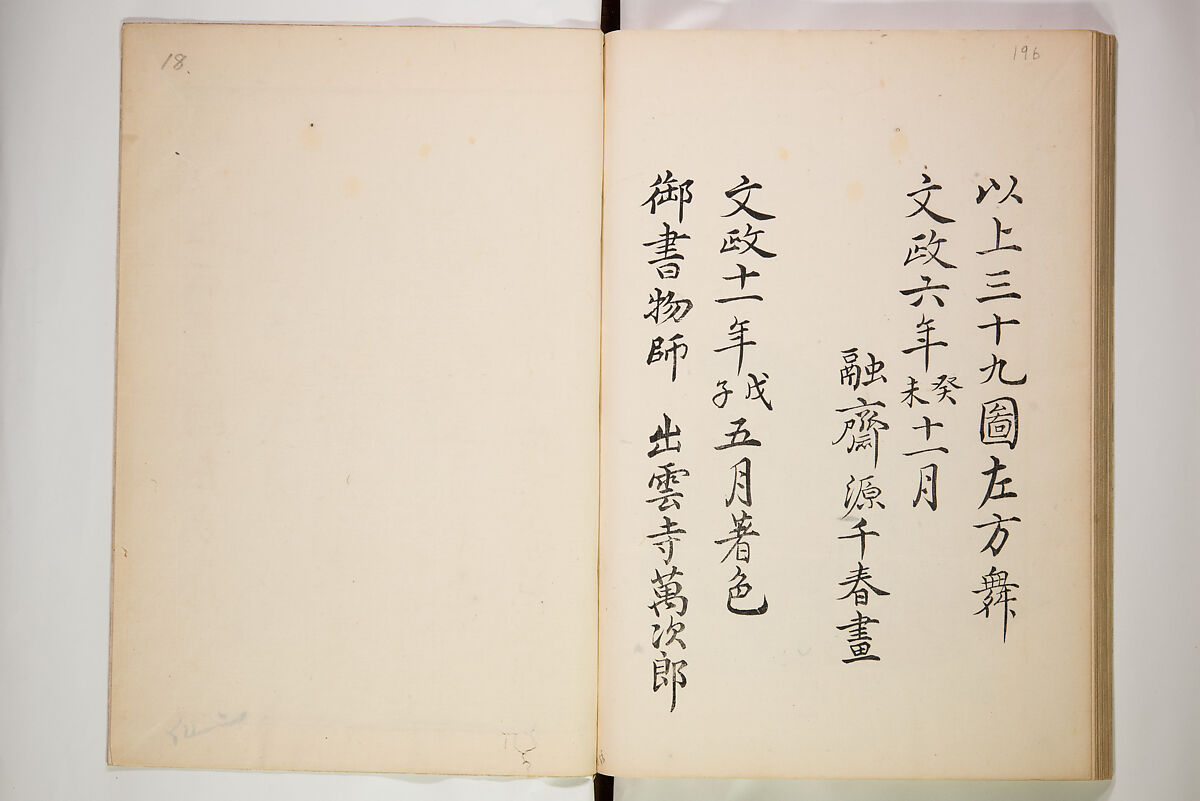 以上三十九圖左方舞
文政六年癸未十一月
融齋源千春畫
文政十一年戊子五月著色
御書物師 出雲寺萬次郎
196
18